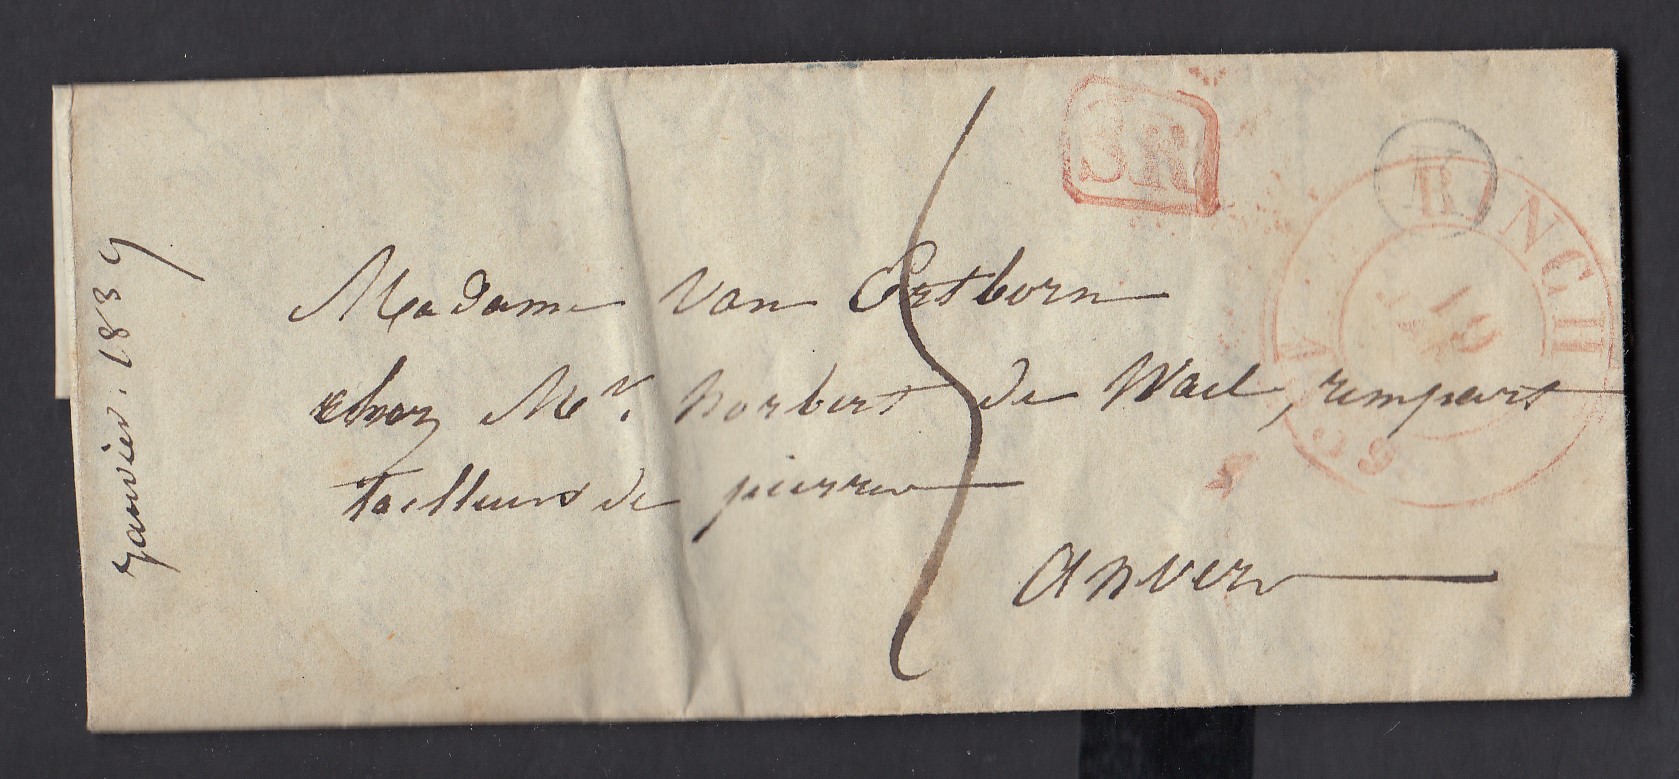 SR
Janvier. 1839
Madame Van Ertborn
chez Mr. Norbert de Wael, rempart
tailleurs de pierre
Anvers
10